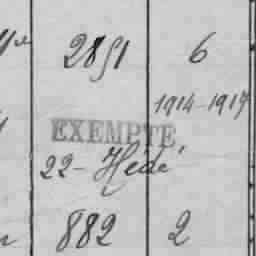 2851 6
1914-1917
EXEMPTÉ
22- Hédé
882 2